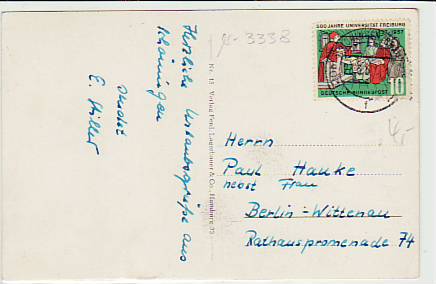 Herzliche Urlaubsgrüße aus
Schöningen
sendet
E. Hiller
a- 3338
500 JAHRE UNIVERSITÄT FREIBURG
1957
DEUTSCHE BUNDESPOST
10
4,-
Nr. 15 Verlag Ferd. Lagerbauer & Co., Hamburg 23
Herrn
Paul Hauke
nebst Frau
Berlin-Wittenau
Rathauspromenade 74